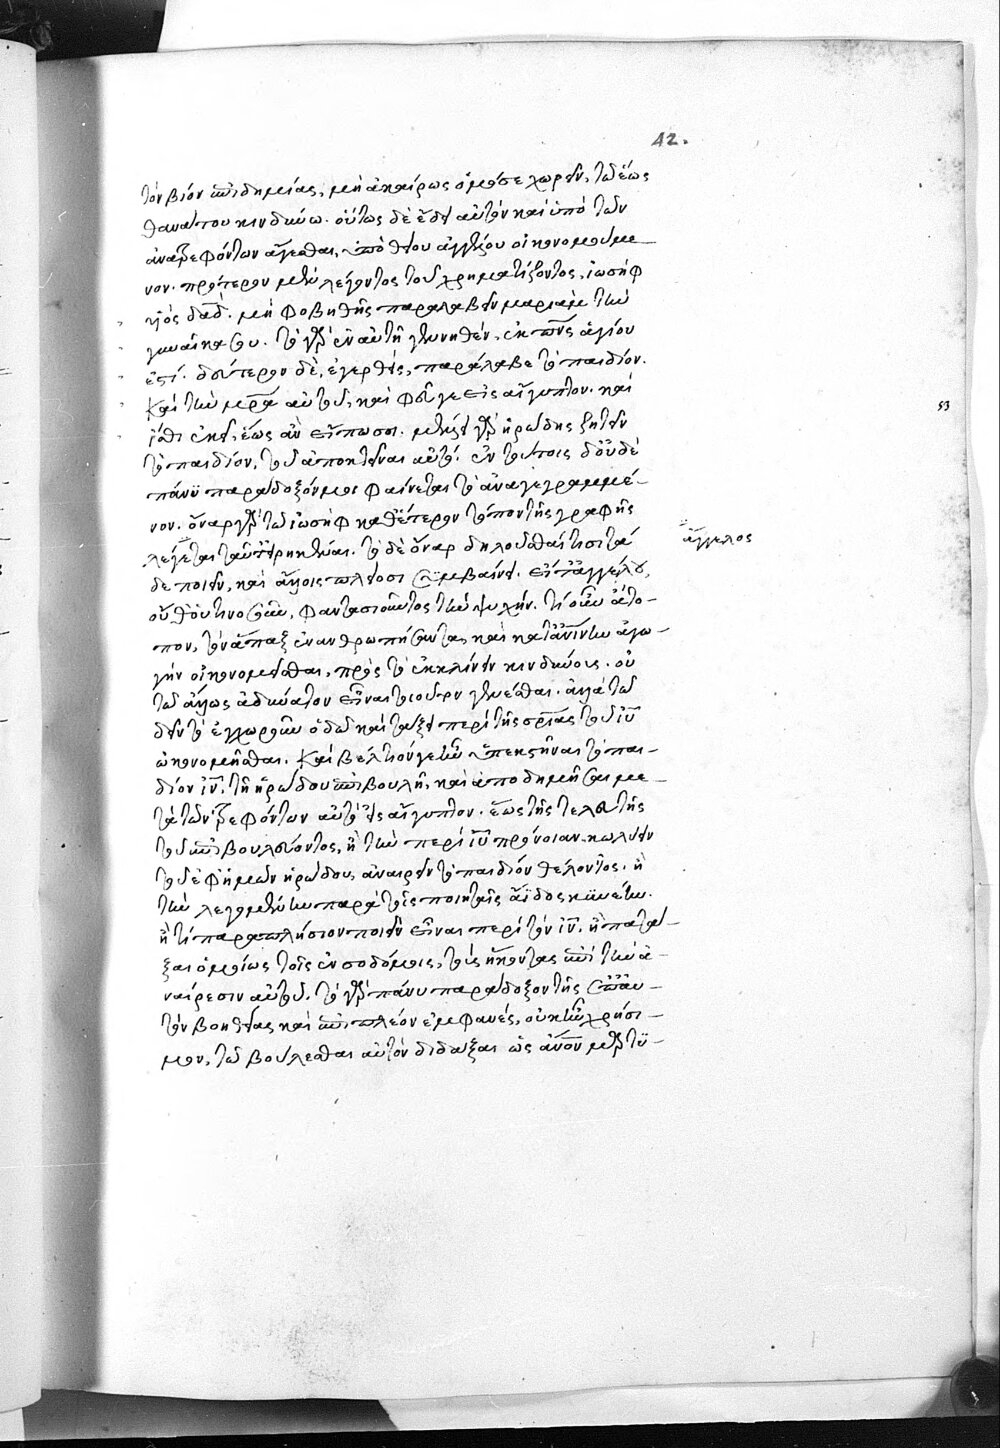 42.
τὸν βίον ἐπιδημίας, μὴ ἀκαίρως ὁμόσε χωρεῖν, τῷ ἕως
θανάτου κινδύνῳ. οὕτως δὲ ἔδει αὐτὸν καὶ ὑπὸ τῶν
ἀνατρεφόντων ἄγεσθαι, ὑπὸ θείου ἀγγέλου οἰκονομουμέ-
νον. πρότερον μὲν λέγοντος τοῦ χρηματίζοντος, ἰωσὴφ
υἱὸς δαδ. μὴ φοβηθῆς παραλαβεῖν μαριὰμ τὴν
γυναῖκα σου. τὸ γὰρ ἐν αὐτῆ γεννηθέν, ἐκ πνς ἁγίου
ἐστί. δεύτερον δὲ, ἐγερθεὶς, παράλαβε τὸ παιδίον.
καὶ τὴν μρα αὐτοῦ, καὶ φεῦγε εἰς αἴγυπτον. καὶ
ἴσθι ἐκεῖ, ἕως ἂν εἴπω σοι. μέλλει γὰρ ἡρώδης ζητεῖν
τὸ παιδίον, τοῦ ἀποκτεῖναι αὐτό. ἐν τούτοις δ' οὐδὲ
πάνυ παράδοξόν μοι φαίνεται τὸ ἀναγεγραμμέ-
νον. ὄναρ γὰρ τῷ ἰωσὴφ καθ' ἑκάτερον τόπον τῆς γραφῆς
λέγεται ταῦτ' εἰρηκέναι. τὸ δὲ ὄναρ δηλοῦσθαί τισι τά
ἄγγελος
δε ποιεῖν, καὶ ἄλλοις πλείοσι συμβαίνει. εἴτ' ἀγγέλου,
εἴθ' οὑτινοσοῦν, φαντασιοῦντος τὴν ψυχήν. τί οὖν ἄτο-
πον, τὸν ἅπαξ ἐνανθρωπήσαντα, καὶ κατ' ἀνίνην ἀγω-
γὴν οἰκονομεῖσθαι, πρὸς τὸ ἐκκλίνειν κινδύνους. οὐ
τῷ ἄλλως ἀδύνατον εἶναι τοιοῦτον γενέσθαι. ἀλλὰ τῷ
δεῖν τὸ ἐγχωροῦν ὁδῷ καὶ τάξει περὶ τῆς σρίας τοῦ ιυ
ᾠκονομῆσθαι. καὶ βέλτιόν γε ἦν ὑπεκστῆναι τὸ παι-
δίον ιν. τὴν ἡρώδου ἐπιβουλὴν, καὶ ἀποδημῆσαι με-
τὰ τῶν τρεφόντων αὐτὸ εἰς αἴγυπτον. ἕως τῆς τελευτῆς
τοῦ ἐπιβουλεύοντος, ἢ τὴν περὶ ιυ πρόνοιαν κωλύειν
τὸ ἐφ' ἡμῖν ἡρώδου, ἀναιρεῖν τὸ παιδίον θέλοντος. ἢ
τὴν λεγομένην παρὰ τοῖς ποιηταῖς ἄϊδος κυνέην.
ἤ τι παραπλήσιον ποιεῖν εἶναι περὶ τὸν ιν. ἢ πατά-
ξαι ὁμοίως τοῖς ἐν σοδόμοις, τοὺς ἥκοντας ἐπὶ τὴν ἀ-
ναίρεσιν αὐτοῦ. τὸ γὰρ πάνυ παράδοξον τῆς ἐπ' αὐ-
τὸν βοηθείας καὶ ἐπιπλέον ἐμφανές, οὐκ ἦν χρήσι-
μον, τῷ βούλεσθαι αὐτὸν διδάξαι ὡς ἄνον μαρτυ-
53